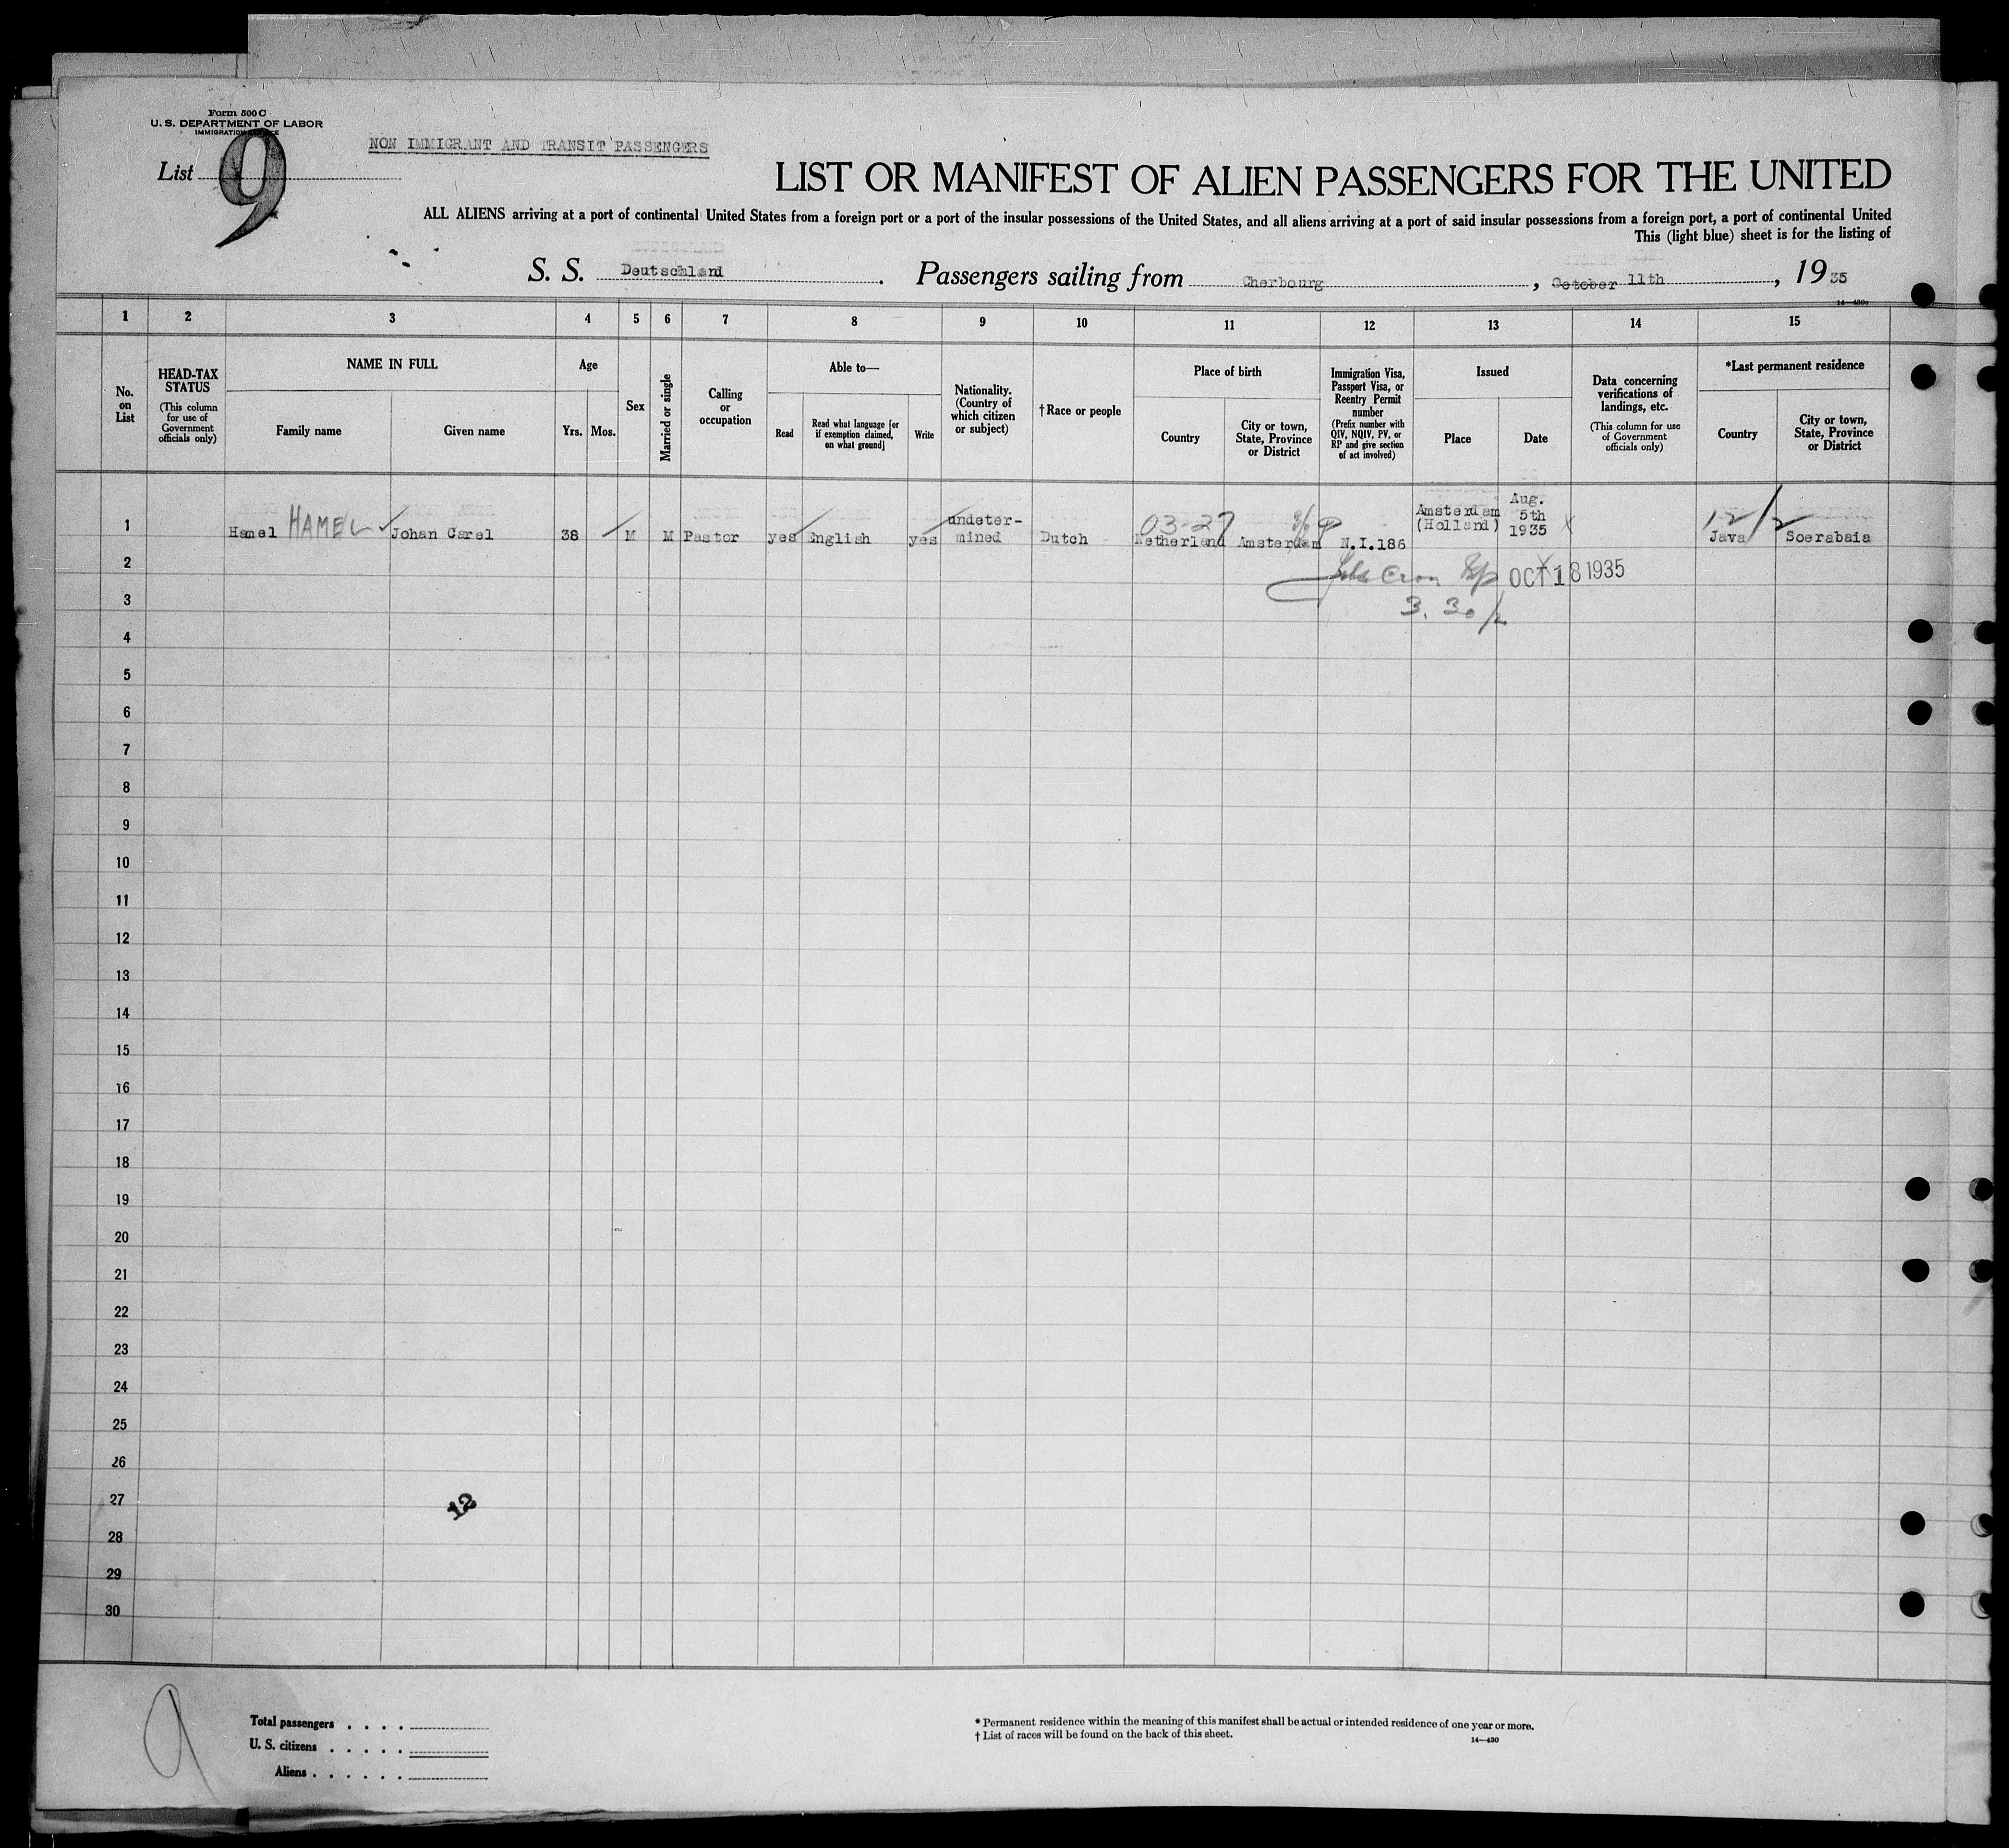 Form 500 C
U. S. DEPARTMENT OF LABOR
IMMIGRATION SERVICE
List 9
NON IMMIGRANT AND TRANSIT PASSENGERS
LIST OR MANIFEST OF ALIEN PASSENGERS FOR THE UNITED
ALL ALIENS arriving at a port of continental United States from a foreign port or a port of the insular possessions of the United States, and all aliens arriving at a port of said insular possessions from a foreign port, a port of continental United
This (light blue) sheet is for the listing of
S. S. Deutschland. Passengers sailing from Cherbourg, October 11th, 1935
14—430a
1 2 3 4 5 6 7 8 9 10 11 12 13 14 15
No. on List
HEAD-TAX STATUS
(This column for use of Government officials only)
NAME IN FULL
Family name
Given name
Age
Yrs. Mos.
Sex
Married or single
Calling or occupation
Able to—
Read
Read what language [or if exemption claimed, on what ground]
Write
Nationality. (Country of which citizen or subject)
†Race or people
Place of birth
Country
City or town, State, Province or District
Immigration Visa, Passport Visa, or Reentry Permit number
(Prefix number with QIV, NQIV, PV, or RP and give section of act involved)
Issued
Place
Date
Data concerning verifications of landings, etc.
(This column for use of Government officials only)
*Last permanent residence
Country
City or town, State, Province or District
1 Hamel HAMEL Johan Carel 38 M M Pastor yes English yes undeter-mined Dutch Netherland 03-27 Amsterdam N.I.186 Amsterdam (Holland) Aug. 5th 1935 Java Soerabaia
2 OCT 18 1935
3 3.30
4
5
6
7
8
9
10
11
12
13
14
15
16
17
18
19
20
21
22
23
24
25
26
27 12
28
29
30
9
Total passengers
U. S. citizens
Aliens
* Permanent residence within the meaning of this manifest shall be actual or intended residence of one year or more.
† List of races will be found on the back of this sheet.
14—430